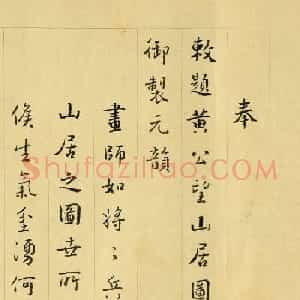 奉
敕題黃公望山居圖
御製元韻
畫師如將將兵
山居之圖世所
候生氣坌湧何
Shufaziliao.com